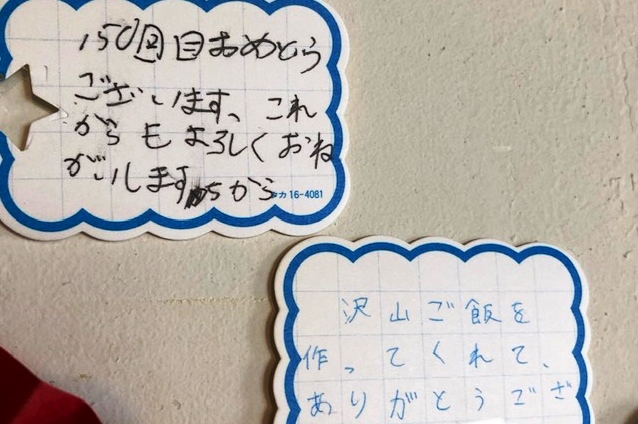 150回目おめとう
ございます、これ
からもよろしくおね
がいします
から
カ 16-4081
沢山ご飯を
作ってくれて、
ありがとうござ